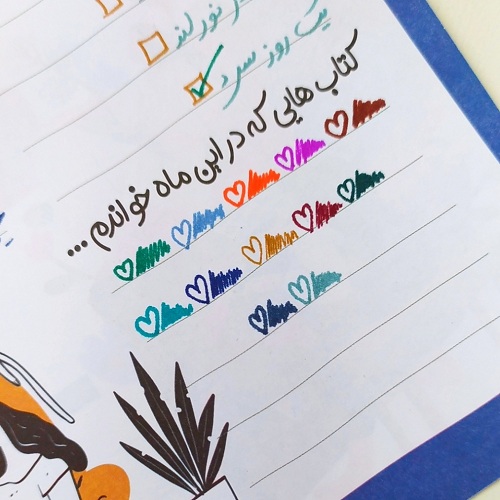 نورلند
یک روز سرد
کتاب هایی که در این ماه خواندم ...